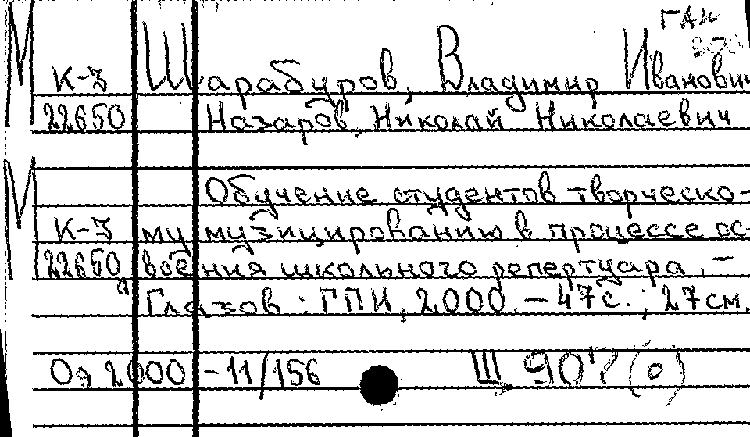 ГАК
М К-3 Шарабуров, Владимир Иванович
22650 Назаров, Николай Николаевич
Обучение студентов творческо-
М К-3 му музицированию в процессе ос-
22650 воения школьного репертуара. –
Глазов : ГПИ, 2000. – 47 с. ; 27 см.
Оэ 2000 -11/156 Ш 907 (о)